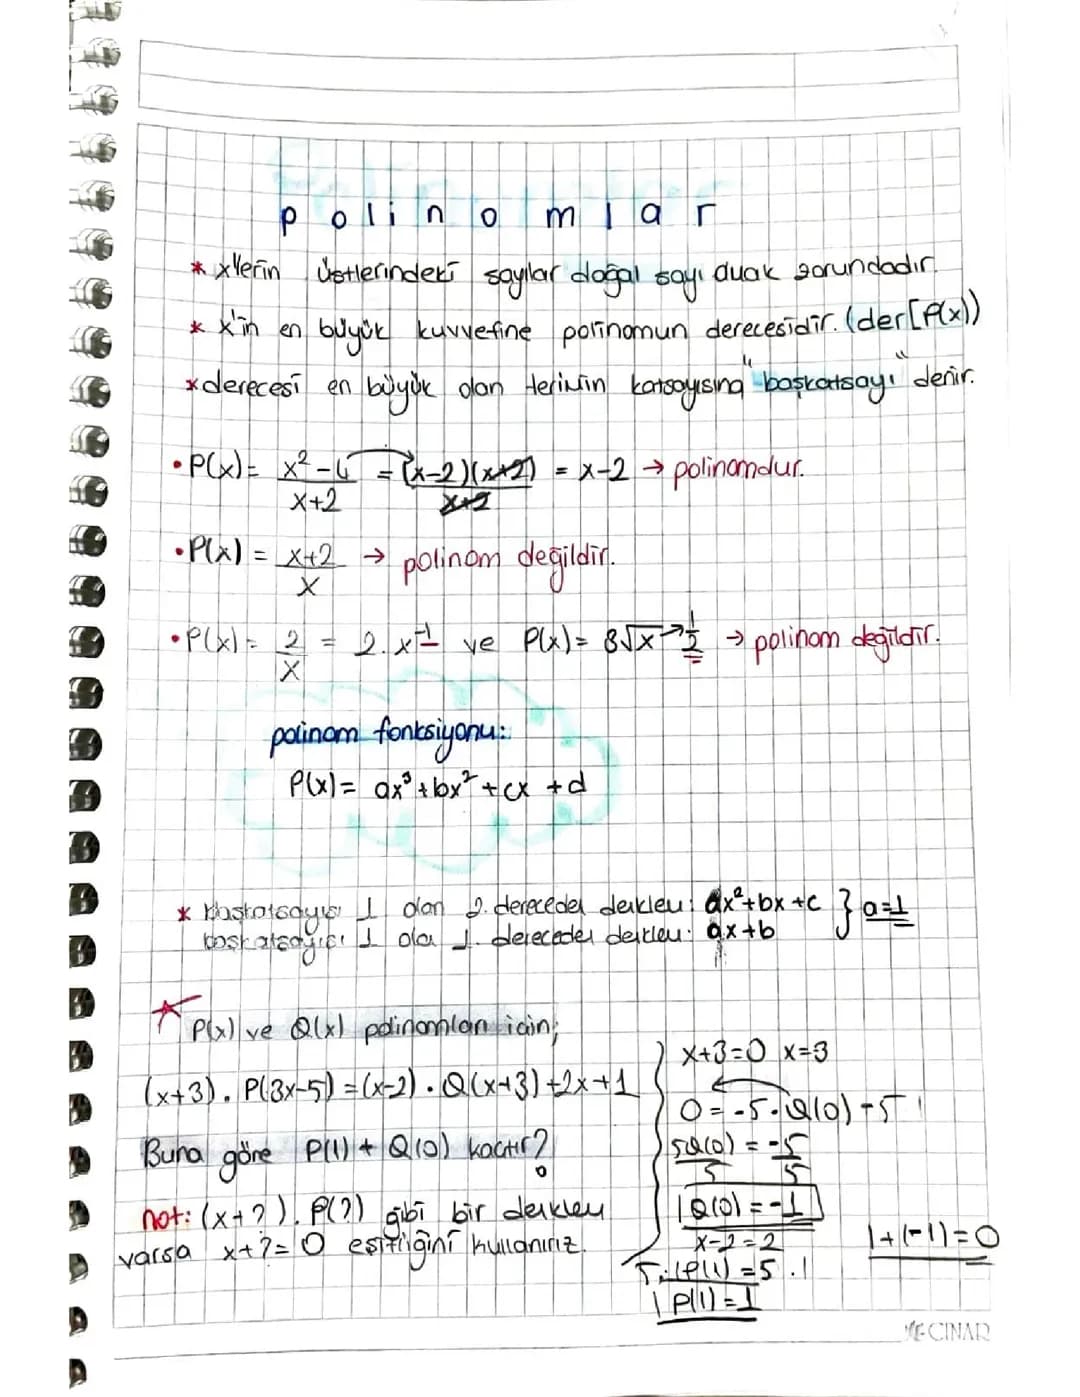 polinomlar
* x'lerin üstlerindeki sayılar doğal sayı olmak zorundadır.
* x'in en büyük kuvvetine polinomun derecesidir. (der[P(x))
* derecesi en büyük olan terimin katsayısına "başkatsayı" denir.
• P(x) = x² - 4 / x+2 = (x-2)(x+2) / x+2 = x-2 → polinomdur.
• P(x) = x+2 / x → polinom değildir.
• P(x) = 2 / x = 2.x⁻¹ ve P(x) = 8√x → 1/2 → polinom değildir.
polinom fonksiyonu:
P(x) = ax³ + bx² + cx + d
* Başkatsayısı 1 olan 2. dereceden denklem: ax²+bx+c } a=1
başkatsayısı 1 olan 1. dereceden denklem: ax+b
P(x) ve Q(x) polinomları için;
(x+3). P(3x-5) = (x-2). Q(x+3) + 2x+1
Buna göre P(1) + Q(0) kaçtır?
not: (x+?). P(?) gibi bir denklem
varsa x+?=0 eşitliğini kullanırız.
x+3=0 x=3
0 = -5.Q(0) -5
5Q(0) = -5
5 5
Q(0) = -1
x-2=2
P(1) = 5
P(1) = 1
1+(-1)=0
ÇINAR